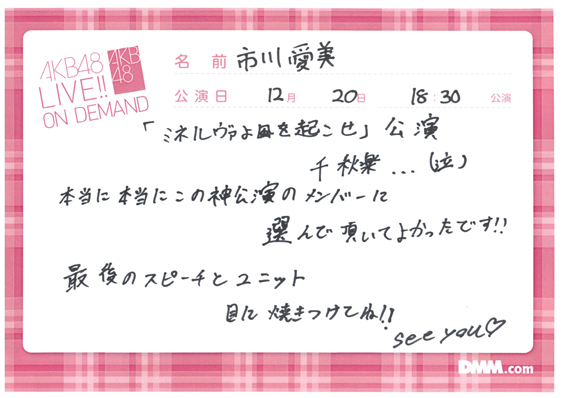 AKB48
LIVE!!
ON DEMAND
AKB
48
名前 市川愛美
公演日 12月 20日 18:30 公演
「ミネルヴァよ風を起こせ」公演
千秋楽...(泣)
本当に本当にこの神公演のメンバーに
選んで頂いてよかったです!!
最後のスピーチとユニット
目に焼きつけてね!!
see you♡
DMM.com